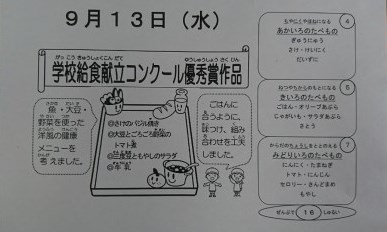 9月13日（水）
がっこうきゅうしょくこんだて
ゆうしゅうしょうさくひん
学校給食献立コンクール優秀賞作品
魚・大豆・
野菜を使った
洋風の健康
メニューを
考えました。
◎さけのバジル焼き
◎大豆とごろごろ野菜の
トマト煮
◎三度豆ともやしのサラダ
◎牛乳
ごはんに
合うように、
味つけ、組み
合わせを工夫
しました。
4
ちやにくやほねになる
あかいろのたべもの
ぎゅうにゅう
さけ・けいにく
だいず
5
ねつやちからのもとになる
きいろのたべもの
ごはん・オリーブあぶら
じゃがいも・サラダあぶら
さとう
7
からだのちょうしをととのえる
みどりいろのたべもの
にんにく・たまねぎ
トマト・にんじん
セロリー・さんどまめ
もやし
ぜんぶで 16 しゅるい